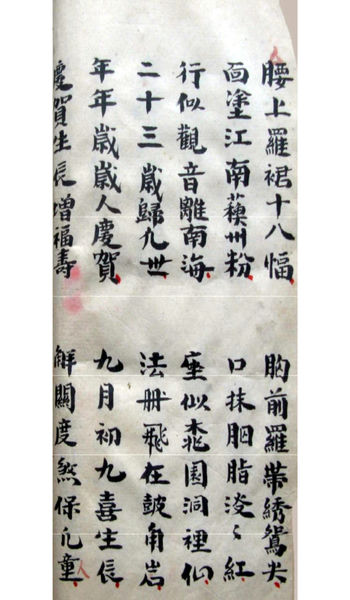 腰上羅裙十八幅 胸前羅帶綉鴛尖
面塗江南蘓州粉 口抹胭脂淡〻紅
行似觀音離南海 座似桃園洞裡仙
二十三歲歸九世 法冊飛在皷角岩
年年歲歲人慶賀 九月初九喜生長
慶賀生長增福壽 觧關度煞保儿童